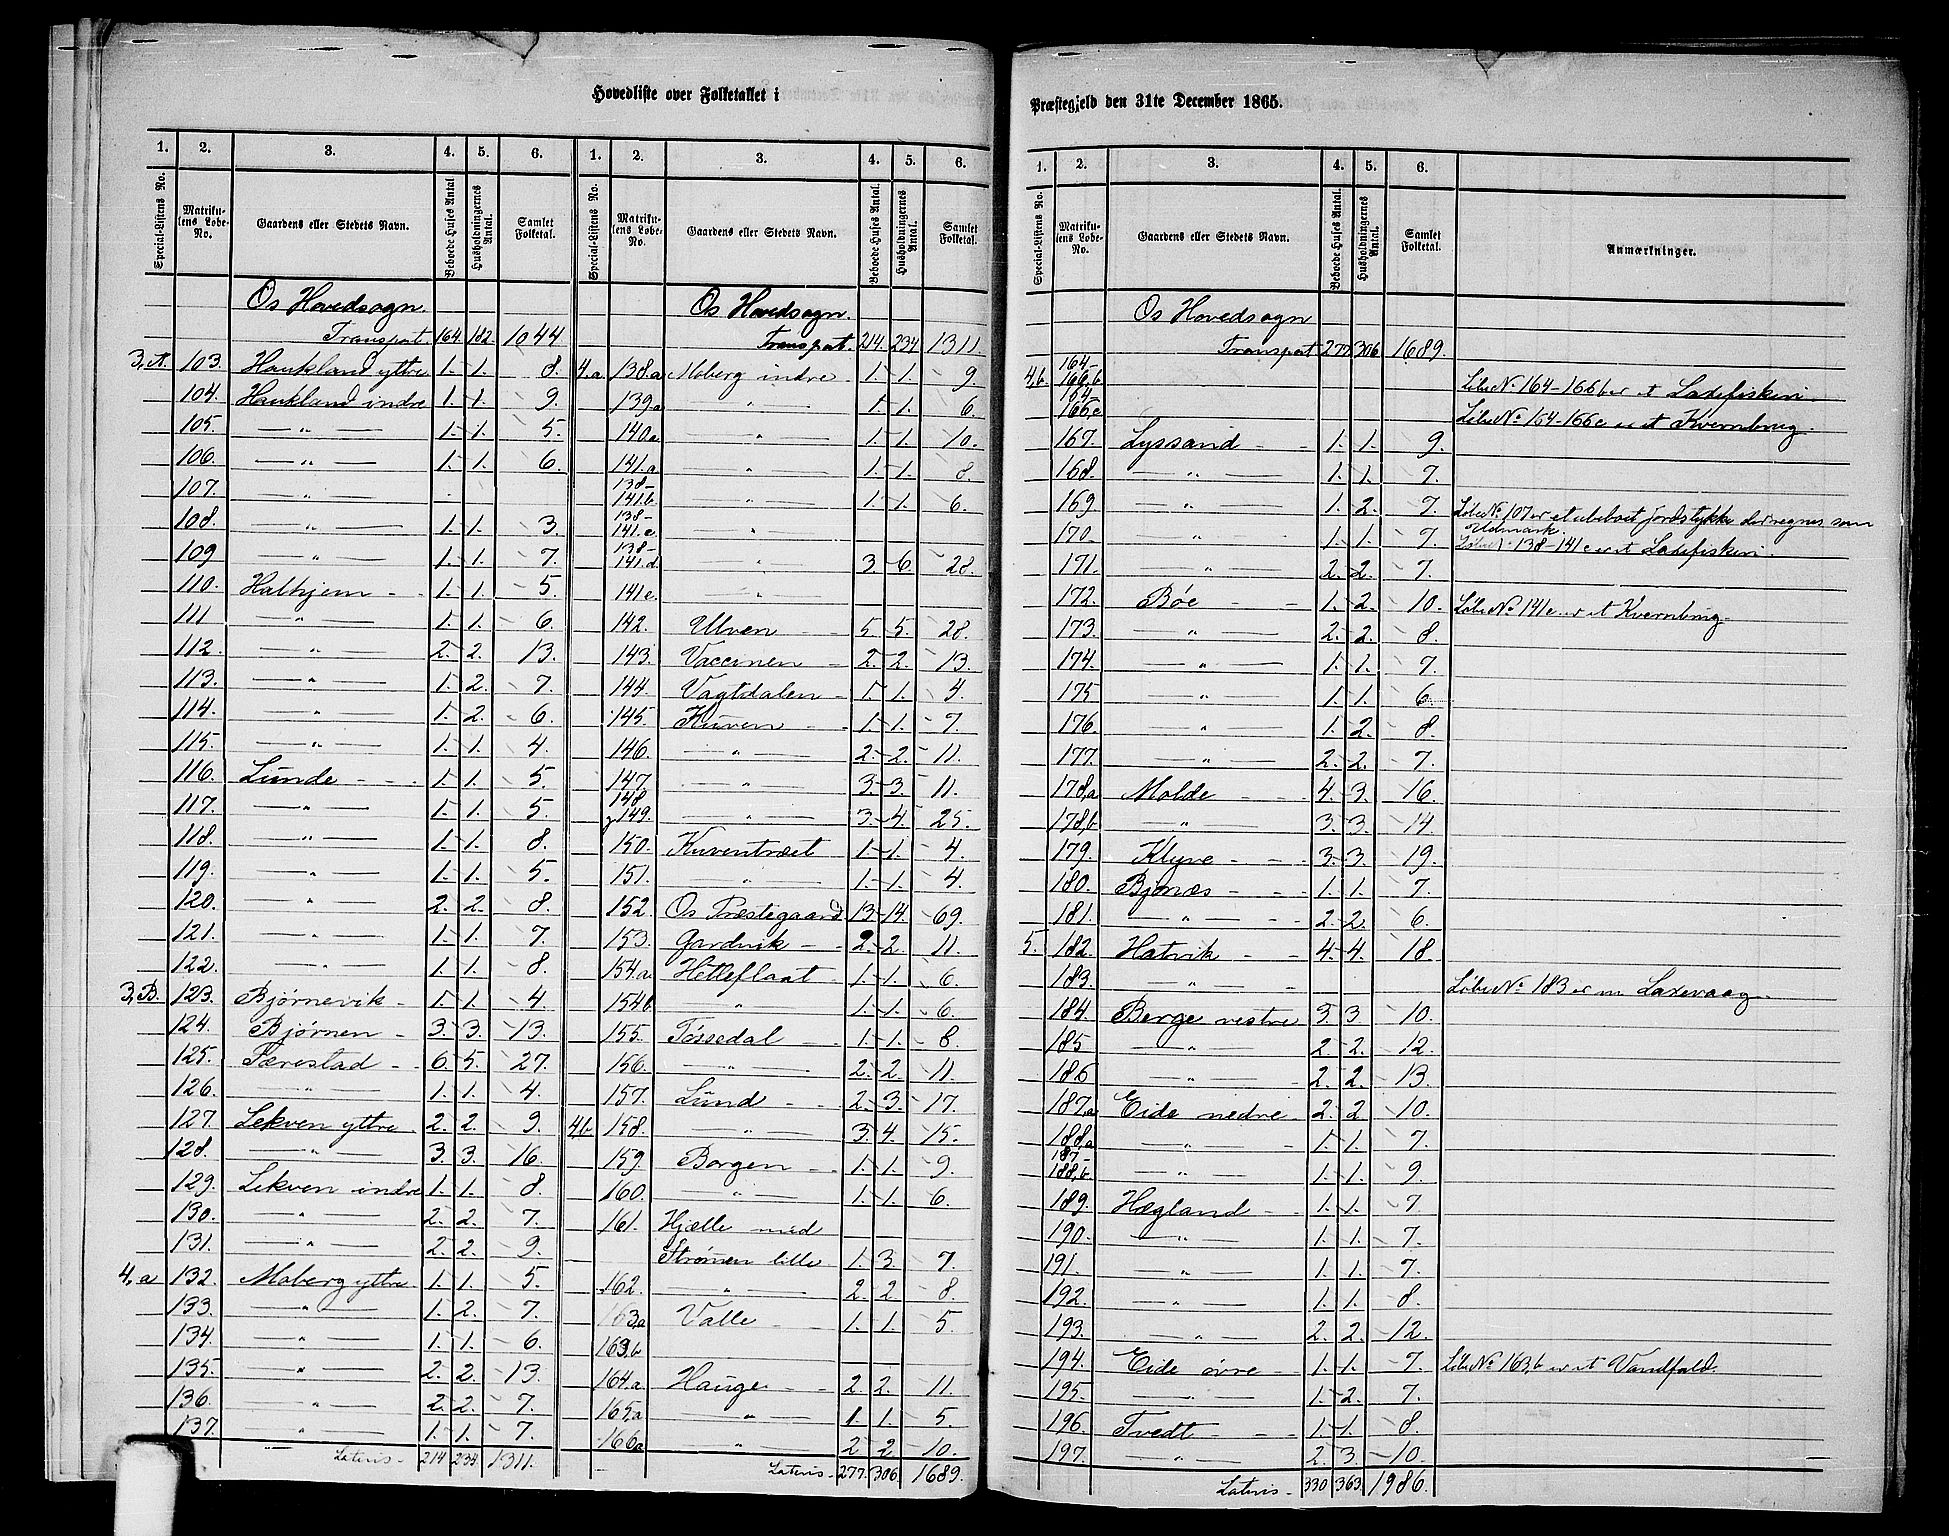 Hovedliste over Folketallet i
1. 2. 3. 4. 5. 6. 1. 2. 3. 4. 5. 6.
Special-Listens No. Matrikulens Løbe-No. Gaardens eller Stedets Navn. Beboede Huses Antal Husholdningernes Antal. Samlet Folketal. Special-Listens No. Matrikulens Løbe-No. Gaardens eller Stedets Navn. Beboede Huses Antal. Husholdningernes Antal. Samlet Folketal.
Os Hovedsogn.
Transport. 164. 182. 1044.
3, A. 103. Haukland yttre 1. 1. 8.
104. Haukland indre 1. 1. 9.
105. — " — 1. 1. 5.
106. — " — 1. 1. 6.
107. — " —
108. — " — 1. 1. 3.
109 — " — 1. 1. 7.
110. Halhjem - - 1. 1. 5.
111 — " — 1. 1. 6.
112. — " — 2. 2. 13.
113. — " — 1. 2. 7.
114. — " — 1. 2. 6.
115. — " — 1. 1. 4.
116. Lunde - - - 1. 1. 5.
117. — " — 1. 1. 5.
118. — " — 1. 1. 8.
119. — " — 1. 1. 5.
120. — " — 2. 2. 8.
121. — " — 1. 1. 7.
122. — " — 1. 1. 8.
3, B. 123. Bjørnevik - 1. 1. 4.
124. Bjørnen - 3. 3. 13.
125. Særestad - - 6. 5. 27.
126. — " — 1. 1. 4.
127. Lekven yttre 2. 2. 9.
128. — " — 3. 3. 16.
129. Lekven indre 1. 1. 8.
130. — " — 2. 2. 7.
131. — " — 2. 2. 9.
4, a 132. Moberg yttre 1. 1. 5.
133. — " — 1. 2. 7.
134. — " — 1. 1. 6.
135. — " — 2. 2. 13.
136. — " — 2. 2. 7.
137. — " — 1. 1. 7.
Lateris - 214 234. 1311.
Os Hovedsogn.
Transport. 214. 234 1311.
4, a 138.a Moberg indre 1. 1. 9.
139.a — " — 1. 1. 6.
140.a. — " — 1. 1. 10.
141.a — " — 1. 1. 8.
138-141.b. — " — 1. 1. 6.
138-141.c. — " —
138-141.d — " — 3. 6. 28.
141e. — " —
142. Ulven 5. 5. 28.
143. Vaccinen - 2. 2. 13.
144. Vagtdalen - 1. 1. 4.
145. Kuven - - 1. 1. 7.
146. — " — 2. 2. 11.
147. — " — 3. 3. 11.
148 g 149. — " — 3. 4. 25.
150. Kuventræet 1. 1. 4.
151. — " — 1. 1. 4.
152. Os Præstegaard 13. 14. 69.
153. Gardvik - - 2. 2. 11.
154.a. Hetleflaat - 1. 1. 6.
154b. — " — 1. 1. 6.
155. Tøssedal - 1. 1. 8.
156. — " — 2. 2. 11.
157. Lund - - 2. 3. 17.
4,b 158. — " — 3. 4. 15.
159. Borgen - - 1. 1. 9.
160. — " — 1. 1. 6.
161. Hjælle med
Strømen lille 1. 3. 7.
162. — " — 2. 2. 8.
163,a Valle - 1. 1. 5.
163,b
164.a. Hauge - - 2. 2. 11.
165,a — " — 1. 1. 5.
166a — " — 2 2 10.
Lateris - 277. 306. 1689.
Præstegjeld den 31te December 1865.
1. 2. 3. 4. 5. 6.
Special-Listens No. Matrikulens Løbe-No. Gaardens eller Stedets Navn. Beboede Huses Antal. Husholdningernes Antal. Samlet Folketal. Anmærkninger.
Os Hovedsogn
Transport 277 306 1689.
4,b 164-166,b Løbe No 164-166b er et Laxefiskeri.
164-166,c Løbe No 164-166c er et Kvernbrug.
167. Lyssand - - 1. 1. 9.
168. — " — 1. 1. 7.
169 — " — 1. 2. 7. Løbe No 107 er et ubeboet Jordstykke der regnes som Udmark.
170. — " — 1. 1. 7. Løbe No 138-141c er et Laxefiskeri.
171. — " — 2. 2. 7.
172. Bøe - - 1. 2. 10. Løbe No 141e er et Kvernbrug.
173. — " — 2. 2. 8.
174. — " — 1. 1. 7.
175 — " — 1. 1. 6.
176. — " — 1. 2. 8.
177. — " — 2. 2. 7.
178,a Molde - - 4. 3. 16.
178,b — " — 3. 3. 14.
179. Klyve - - 3. 3. 19.
180. Bjørnæs - - 1. 1. 7.
181. — " — 2. 2. 6.
5. 182. Hatvik - - 4. 4. 18.
183. — " — Løbe No 183 er en Laxevaag.
184. Berge vestre 3. 3 10.
185 — " — 2. 2. 12.
186 — " — 2. 2. 13.
187,a Eide nedre 2. 2 10.
188,a — " — 1. 1. 7.
187-188,b — " — 1. 1. 9.
189. Hægland - 1. 1. 7.
190. — " — 1. 1. 7.
191. — " — 1. 1. 7.
192. — " — 1. 1. 8.
193. — " — 2. 2. 12.
194. Eide øvre - 1. 1. 7. Løbe No 163,b er et Vandfald.
195. — " — 1. 2. 7.
196. Tvedt - - 1. 1. 8.
197. — " — 2. 3. 10.
Lateris - 330 363. 1986.